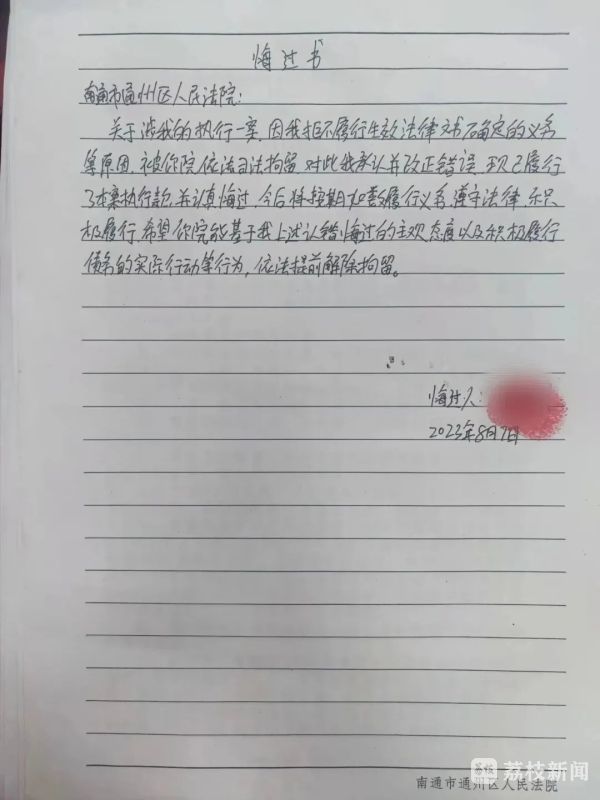 悔过书
南通市通州区人民法院:
关于涉我的执行一案,因我拒不履行生效法律文书确定的义务
等原因,被你院依法司法拘留,对此我承认并改正错误,现已履行
了本案执行款,并认真悔过,今后将按期如数履行义务,遵守法律,积
极履行,希望你院能基于我上述认错悔过的主观态度以及积极履行
债务的实际行动等行为,依法提前解除拘留。
悔过人:
2023年8月7日
荔枝新闻
南通市通州区人民法院